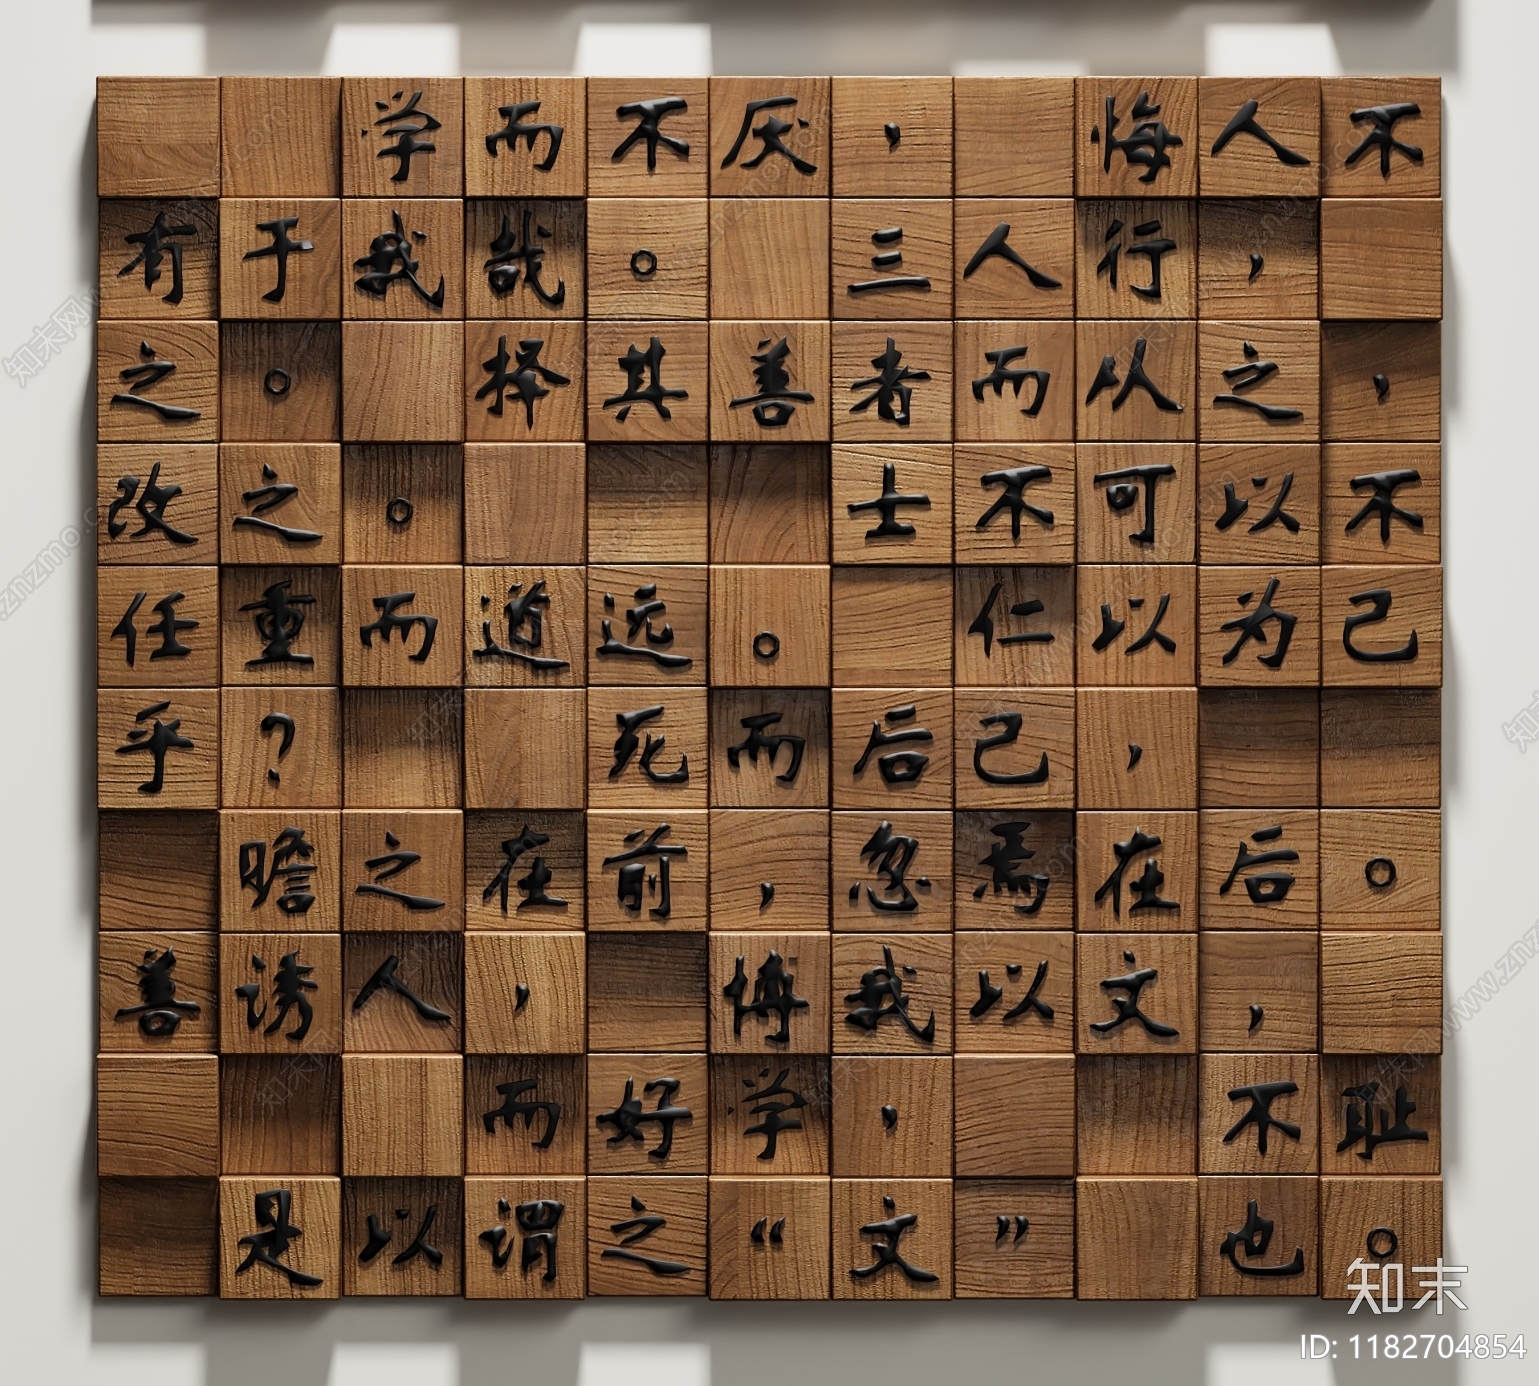 学而不厌， 悔人不
有于我哉。 三人行，
之。 择其善者而从之，
改之。 士不可以不
任重而道远。 仁以为己
乎？ 死而后己，
瞻之在前，忽焉在后。
善诱人， 博我以文，
而好学， 不耻
是以谓之“文” 也。
知末
ID: 1182704854